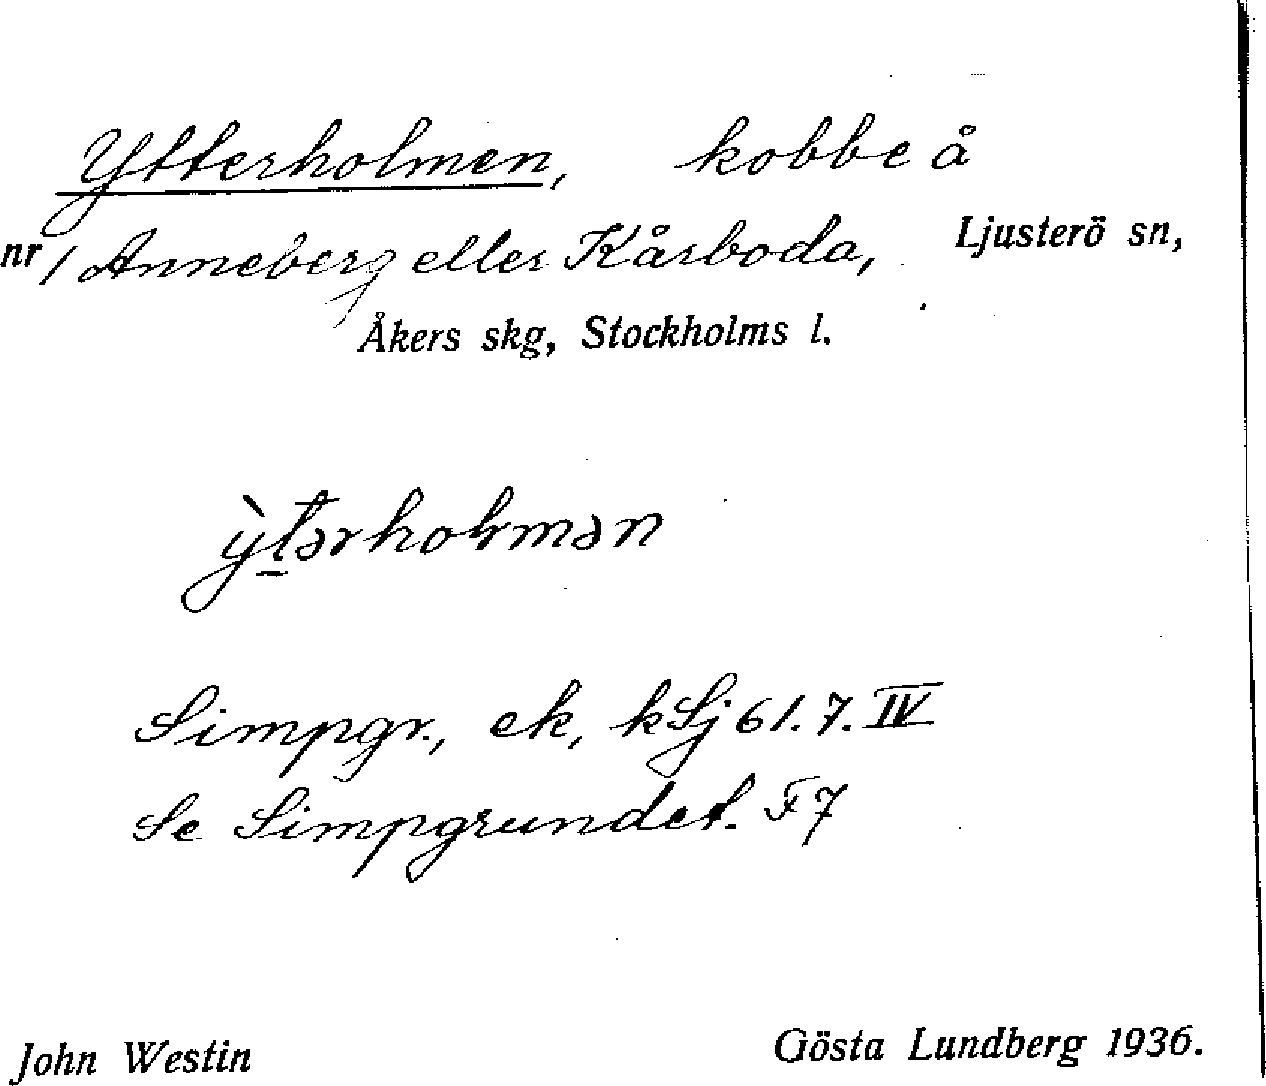 Ytterholmen, kobbe å
nr 1 Anneberg eller Kårboda, Ljusterö sn,
Åkers skg, Stockholms l.
ỳtərholmən
Simpgr., ek, kSj 61.7.IV
Se Simpgrundet. F7
John Westin Gösta Lundberg 1936.